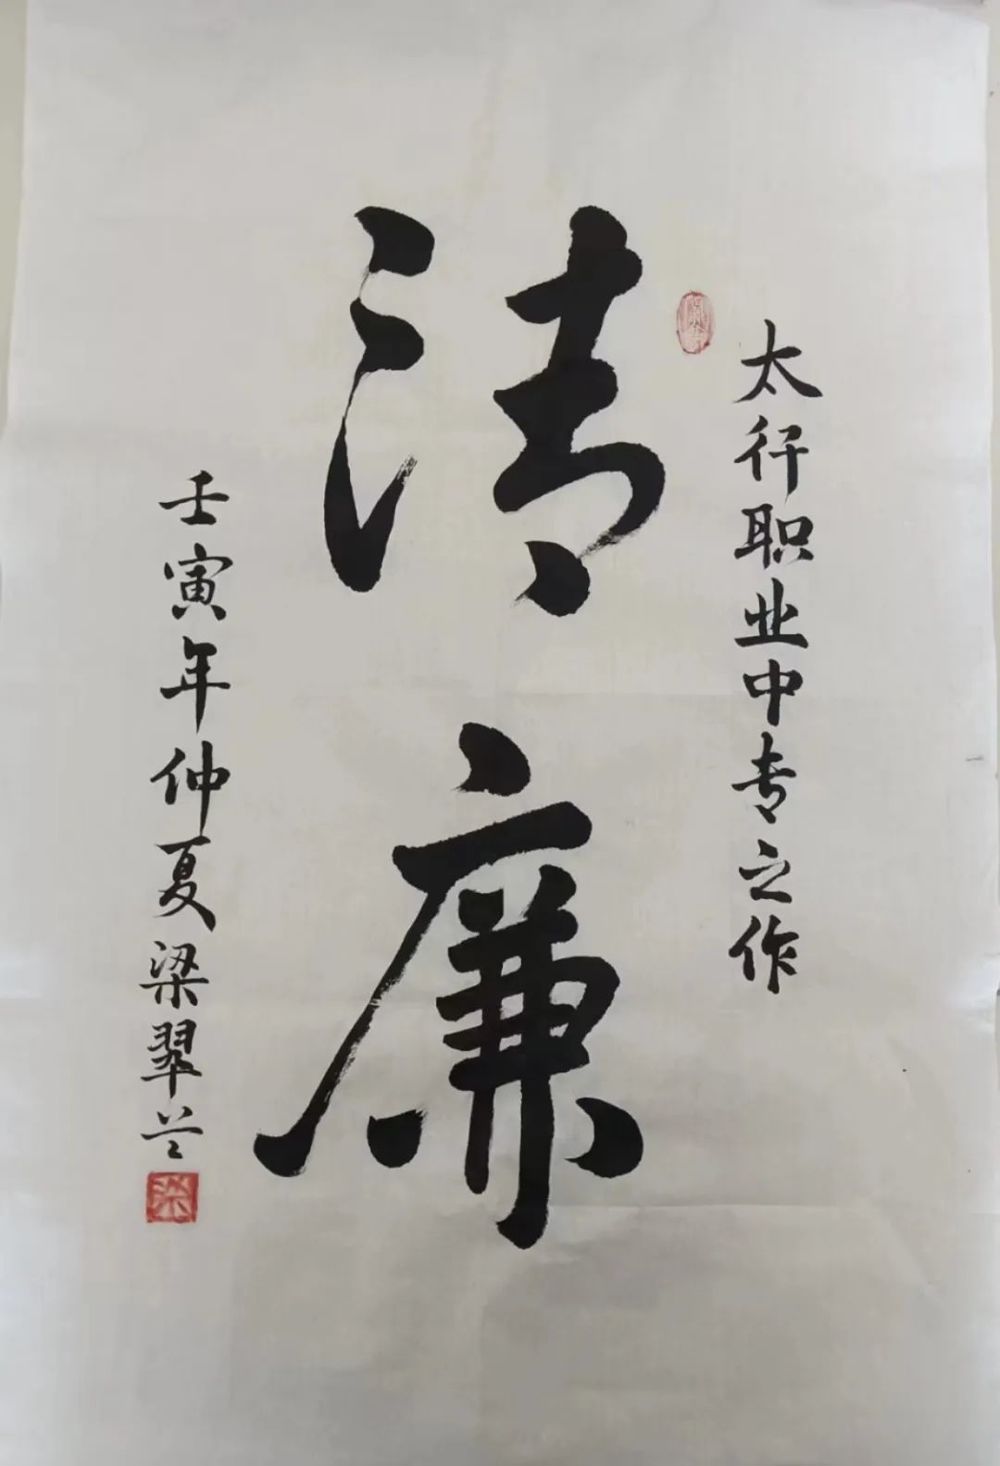 太行职业中专之作
清廉
壬寅年仲夏梁翠兰
梁